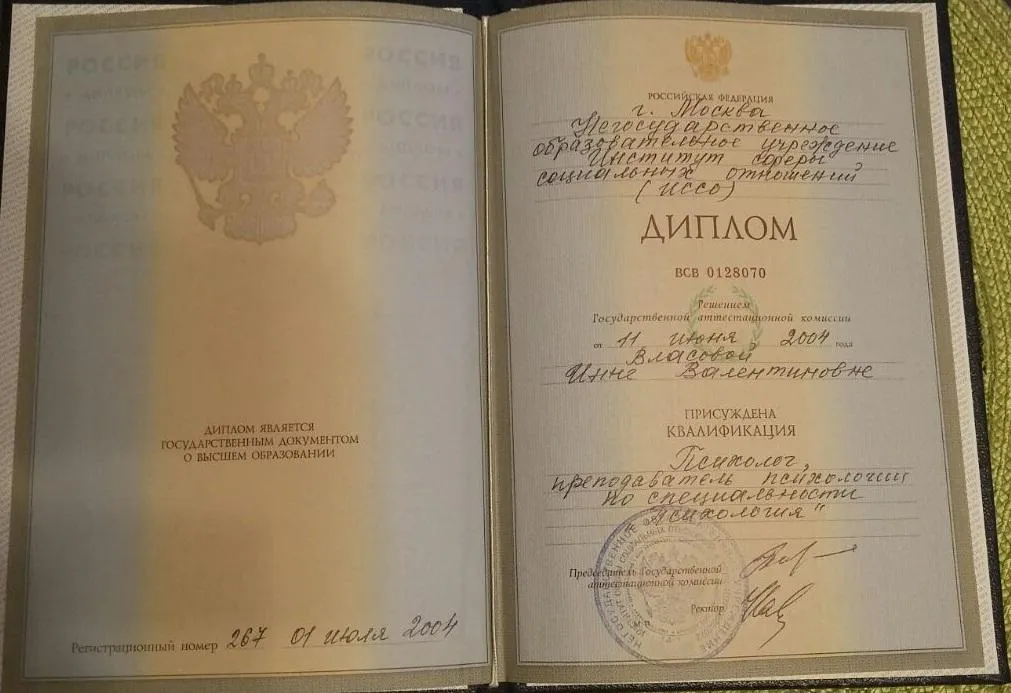 ДИПЛОМ ЯВЛЯЕТСЯ
ГОСУДАРСТВЕННЫМ ДОКУМЕНТОМ
О ВЫСШЕМ ОБРАЗОВАНИИ
Регистрационный номер 267 01 июля 2004
РОССИЙСКАЯ ФЕДЕРАЦИЯ
г. Москва
Негосударственное
образовательное учреждение
Институт сферы
социальных отношений
(ИССО)
ДИПЛОМ
ВСВ 0128070
Решением
Государственной аттестационной комиссии
от 11 июня 2004 года
Власовой
Инне Валентиновне
ПРИСУЖДЕНА
КВАЛИФИКАЦИЯ
Психолог,
преподаватель психологии
по специальности
"Психология"
Председатель Государственной
аттестационной комиссии
Ректор